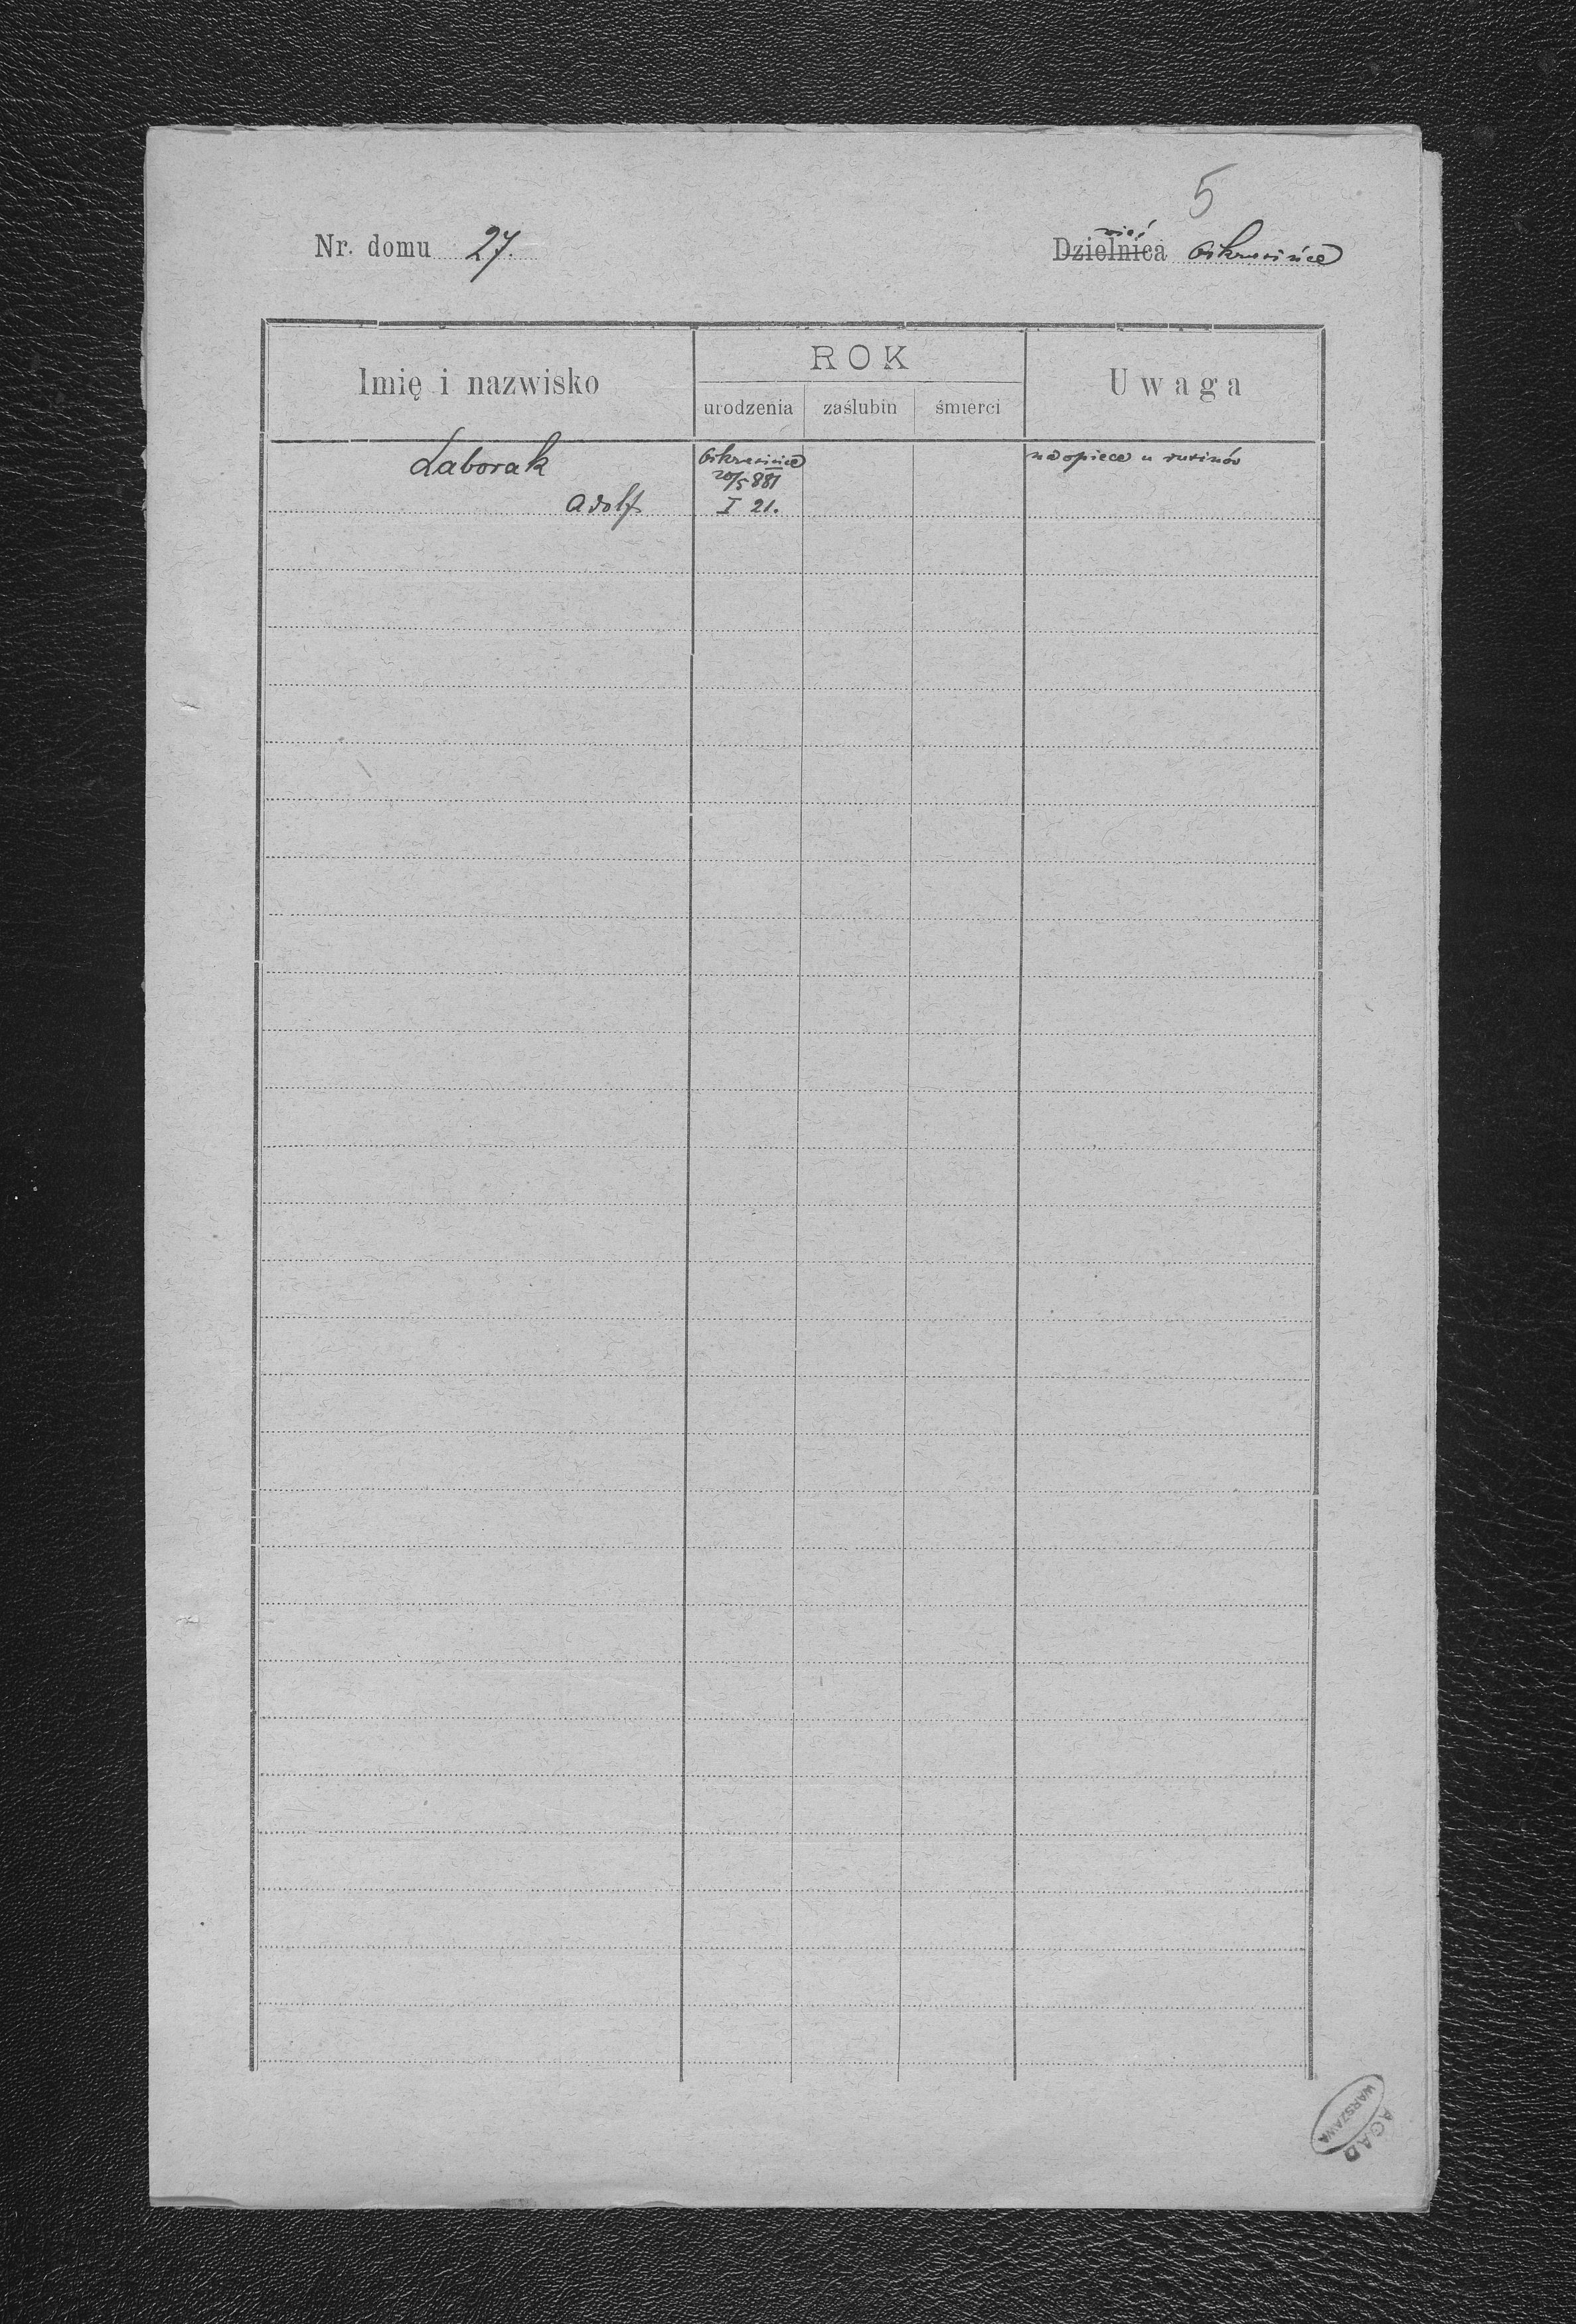 5
Nr. domu 27.
wieś
Dzielnica Oskrzesińce
Imię i nazwisko
ROK
Uwaga
urodzenia zaślubin śmierci
Laborak Oskrzesińce na opiece u rusinów
20/5 881
Adolf I 21.
WARSZAWA
AGAD